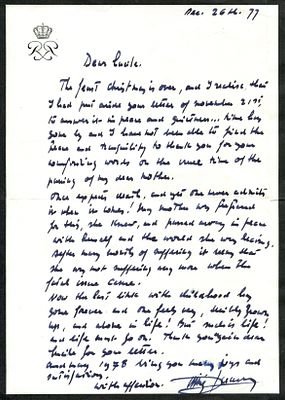 Dec. 26th. 77
Dear Lucile.
The feast Christmas is over, and I realise that
I had put aside your letter of november 21st
to answer it in peace and quietness... time has
gone by and I have not been able to find the
peace and tranquility to thank you for your
comforting words on the time of the
passing of my dear mother.
Once expects death, and yet one never admits
it when it comes. My mother was prepared
for this, she knew, and passed away in peace
with herself and the world she was leaving.
After many months of suffering it seems that
she was not suffering any more when the
fatal issue came.
Now the last link with childhood has
gone forever and one feels very, grown
up, and alone in life! But such is life!
and life must go on. Thank you again dear
Lucile for your letter.
And may 1978 bring you many joys and
satisfactions.
with affection.